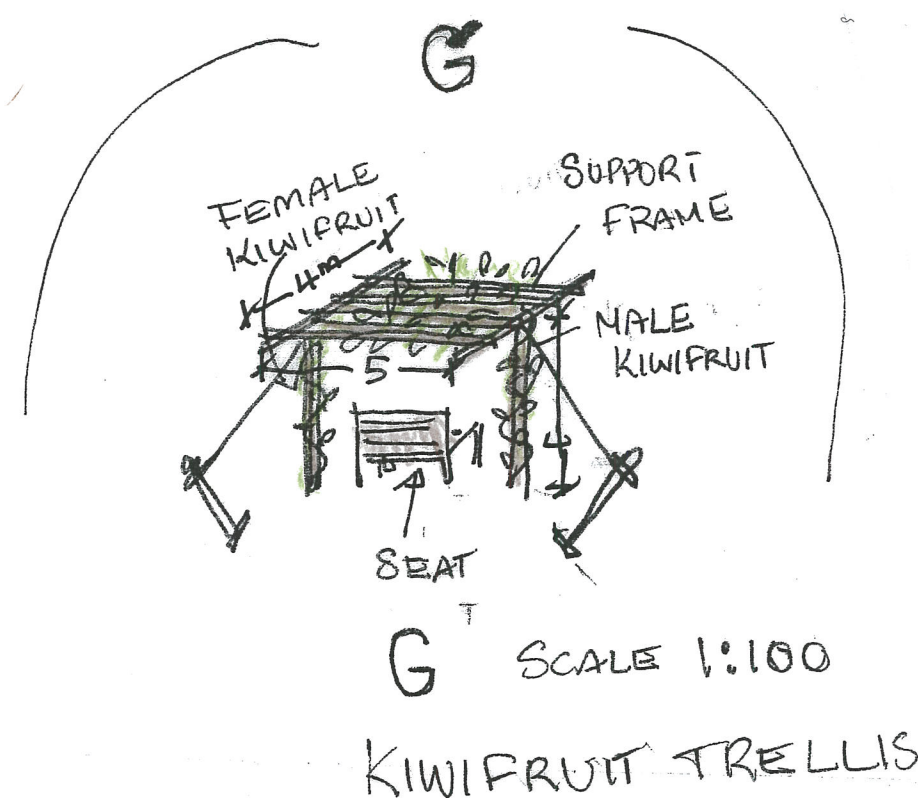 G
FEMALE
KIWIFRUIT
4m
SUPPORT
FRAME
MALE
KIWIFRUIT
5
SEAT
G SCALE 1:100
KIWIFRUIT TRELLIS